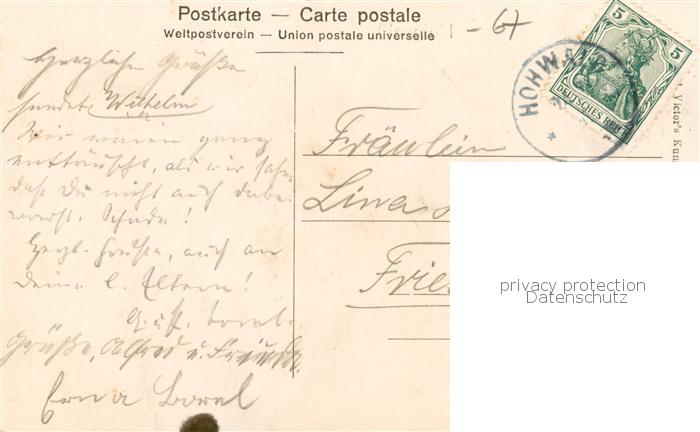 Postkarte — Carte postale
Weltpostverein — Union postale universelle
Herzliche Grüße
sendet Wilhelm
Wir waren ganz
enttäuscht, als wir sahen
daß Du nicht auch dabei
warst. Schade!
Herzl. Grüße, auch an
deine l. Eltern!
Grüße, Alfred u.
Erna Borel
Fräulein
Lina
Frie
HOHWALD
5 5
DEUTSCHES REICH
Victor's Kun
privacy protection
Datenschutz